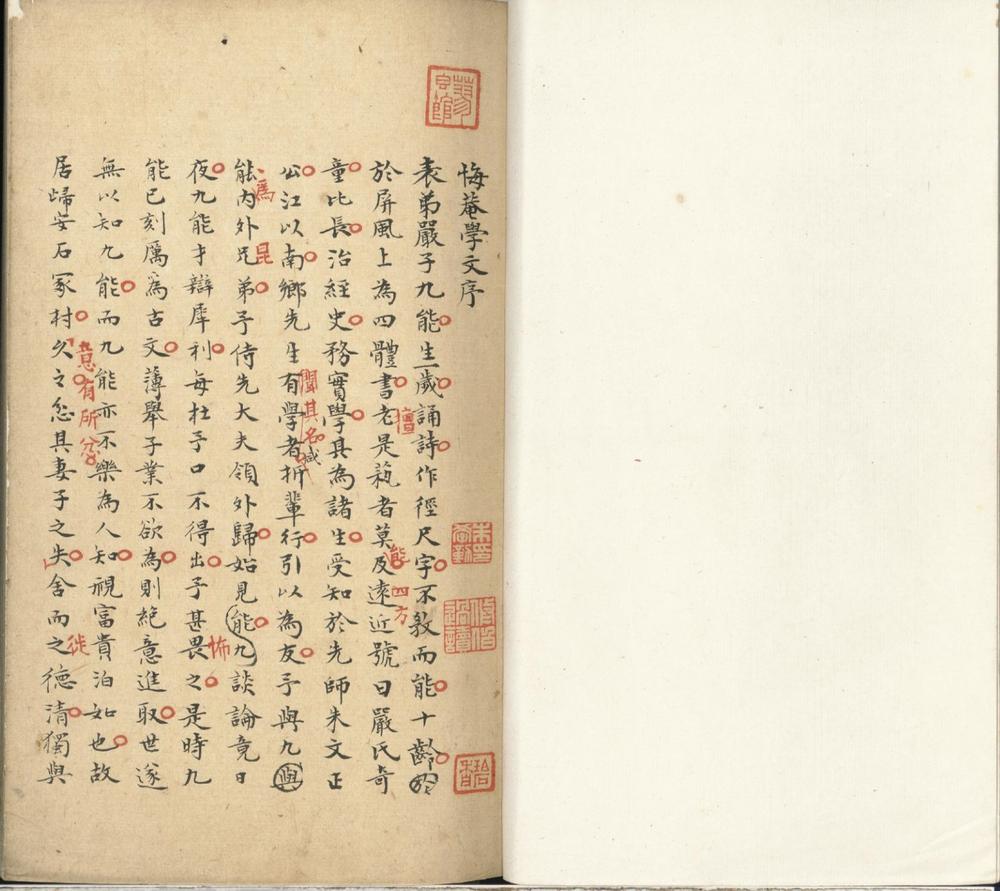 悔菴學文序
表弟嚴子九能生一歲誦詩作徑尺字不教而能十齡能
於屏風上為四體書老是蓺者莫及遠近號曰嚴氏奇
擅
能
四方
童比長治經史務實學其為諸生受知於先師朱文正
公江以南鄉先生有學者折輩行引以為友予與九與
聞其名咸
能內外兄弟予侍先大夫領外歸始見能九談論竟日
為
昆
夜九能才辯犀利每杜予口不得出予甚畏之是時九
怖
能已刻厲為古文薄舉子業不欲為則絕意進取世遂
無以知九能而九能亦不樂為人知視富貴泊如也故
意有所忿
居歸安石冢村久之忿其妻子之失舍而之德清獨與
徙